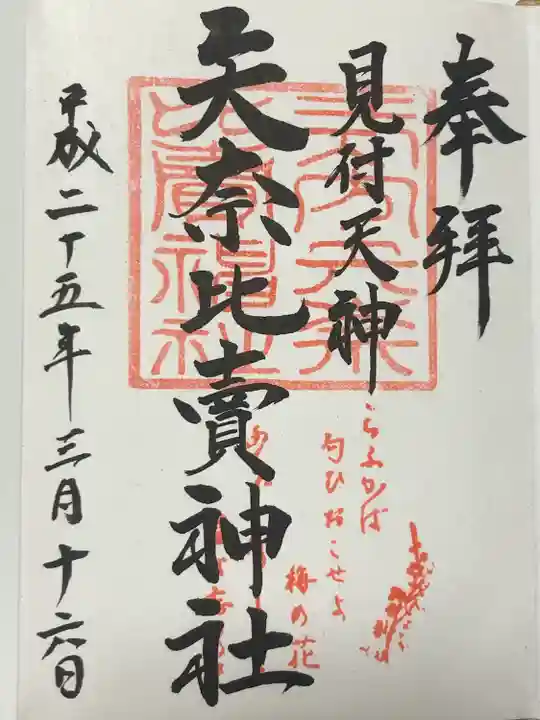 奉拝
見付天神
矢奈比賣神社
平成二十五年三月十六日
ふかば
匂ひおこせよ
梅の花